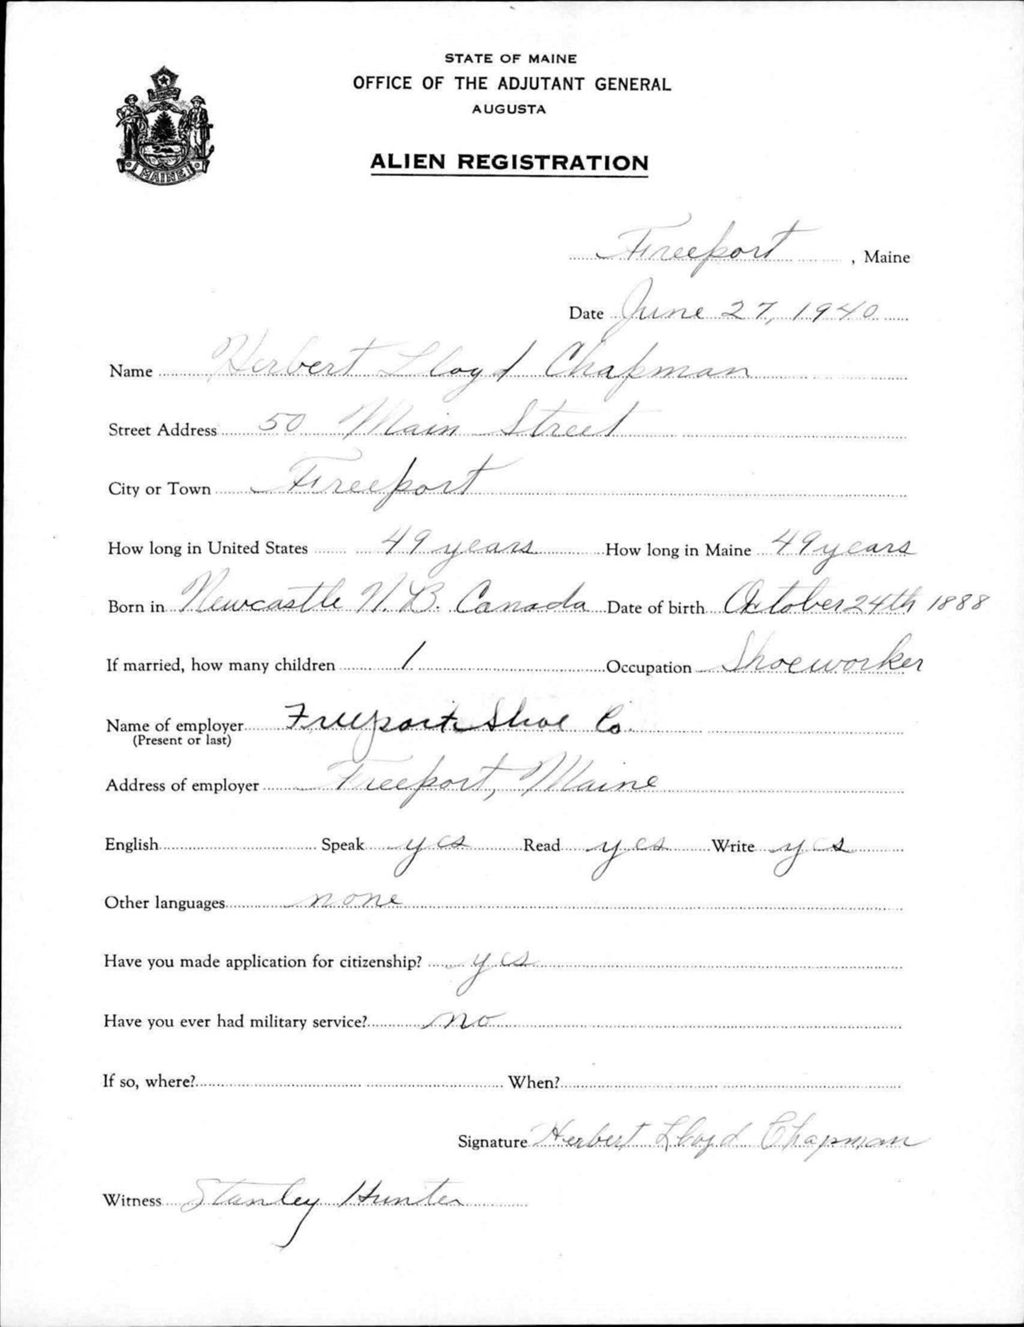 STATE OF MAINE
OFFICE OF THE ADJUTANT GENERAL
AUGUSTA
ALIEN REGISTRATION
MAINE
Freeport, Maine
Date June 27, 1940
Name Herbert Lloyd Chapman
Street Address 50 Main Street
City or Town Freeport
How long in United States 49 years How long in Maine 49 years
Born in Newcastle N.B. Canada Date of birth October 24th 1888
If married, how many children 1 Occupation Shoeworker
Name of employer Freeport Shoe Co.
(Present or last)
Address of employer Freeport, Maine
English Speak yes Read yes Write yes
Other languages none
Have you made application for citizenship? yes
Have you ever had military service? no
If so, where? When?
Signature Herbert Lloyd Chapman
Witness Stanley Hunter